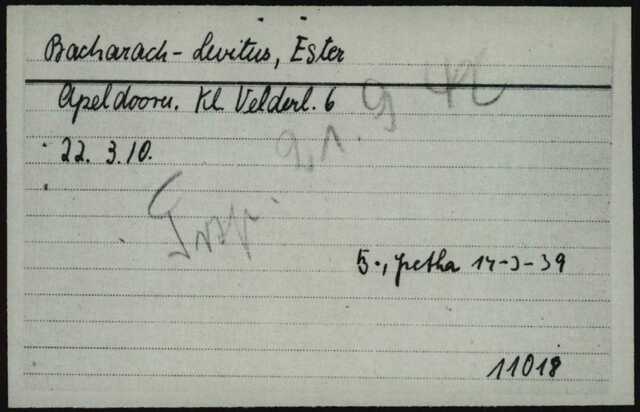 Bacharach-Levitus, Ester
Apeldoorn. Kl. Velderl. 6
22. 3. 10.
Trsp. 21. 9 42
5., petha 17-3-39
11018